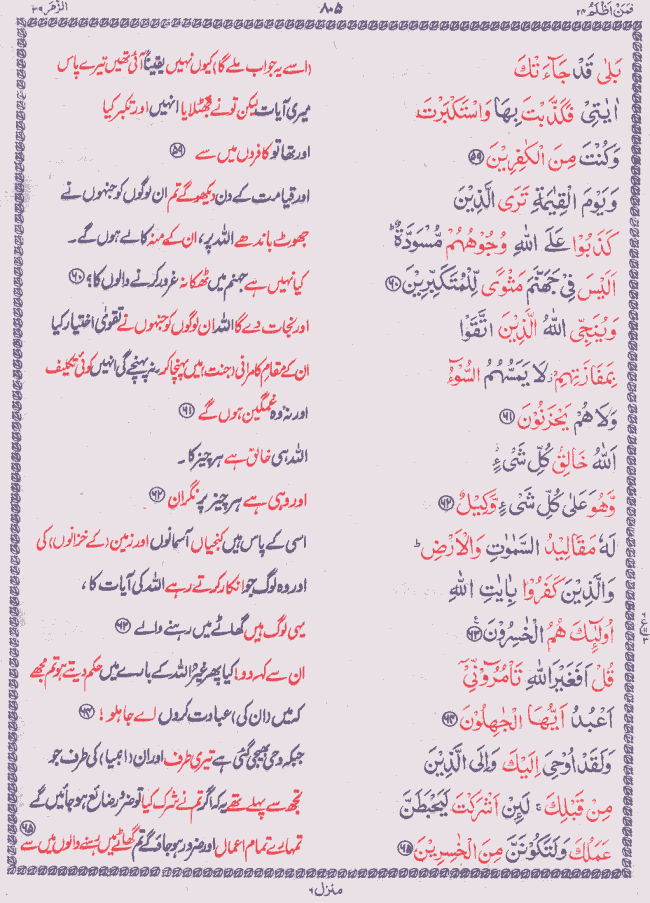 فَمَنْ اَظْلَمُ ۲۴
۸۰۵
الزُّمَر ۳۹
بَلٰى قَدْ جَآءَ تْكَ
اٰيٰتِىْ فَكَذَّبْتَ بِهَا وَاسْتَكْبَرْتَ
وَكُنْتَ مِنَ الْكٰفِرِيْنَ ۵۹
وَيَوْمَ الْقِيٰمَةِ تَرَى الَّذِيْنَ
كَذَبُوْا عَلَى اللّٰهِ وُجُوْهُهُمْ مُّسْوَدَّةٌ ؕ
اَلَيْسَ فِىْ جَهَنَّمَ مَثْوًى لِّلْمُتَكَبِّرِيْنَ ۶۰
وَيُنَجِّى اللّٰهُ الَّذِيْنَ اتَّقَوْا
بِمَفَازَتِهِمْ لَا يَمَسُّهُمُ السُّوْٓءُ
وَلَا هُمْ يَحْزَنُوْنَ ۶۱
اَللّٰهُ خَالِقُ كُلِّ شَىْءٍ
وَّهُوَ عَلٰى كُلِّ شَىْءٍ وَّكِيْلٌ ۶۲
لَهٗ مَقَالِيْدُ السَّمٰوٰتِ وَالْاَرْضِ ؕ
وَالَّذِيْنَ كَفَرُوْا بِاٰيٰتِ اللّٰهِ
اُولٰٓئِكَ هُمُ الْخٰسِرُوْنَ ۶۳
قُلْ اَفَغَيْرَ اللّٰهِ تَاْمُرُوْٓنِّىْٓ
اَعْبُدُ اَيُّهَا الْجٰهِلُوْنَ ۶۴
وَلَقَدْ اُوْحِىَ اِلَيْكَ وَاِلَى الَّذِيْنَ
مِنْ قَبْلِكَ ۚ لَئِنْ اَشْرَكْتَ لَيَحْبَطَنَّ
عَمَلُكَ وَلَتَكُوْنَنَّ مِنَ الْخٰسِرِيْنَ ۶۵
(اسے یہ جواب ملے گا) کیوں نہیں یقیناً آئی تھیں تیرے پاس
میری آیات لیکن تو نے جھٹلایا انہیں اور تکبر کیا
اور تھا تو کافروں میں سے ۵۹
اور قیامت کے دن دیکھو گے تم ان لوگوں کو جنہوں نے
جھوٹ باندھے اللہ پر، ان کے منہ کالے ہوں گے۔
کیا نہیں ہے جہنم میں ٹھکانہ غرور کرنے والوں کا؟ ۶۰
اور نجات دے گا اللہ ان لوگوں کو جنہوں نے تقویٰ اختیار کیا
ان کے مقامِ کامرانی (جنت) میں پہنچا کر، نہ پہنچے گی انہیں کوئی تکلیف
اور نہ وہ غمگین ہوں گے ۶۱
اللہ ہی خالق ہے ہر چیز کا۔
اور وہی ہے ہر چیز پر نگران ۶۲
اسی کے پاس ہیں کنجیاں آسمانوں اور زمین (کے خزانوں) کی
اور وہ لوگ جو انکار کرتے رہے اللہ کی آیات کا،
یہی لوگ ہیں گھاٹے میں رہنے والے ۶۳
ان سے کہہ دو! کیا پھر غیر اللہ کے بارے میں حکم دیتے ہو تم مجھے
کہ میں (ان کی) عبادت کروں اے جاہلو! ۶۴
جبکہ وحی بھیجی گئی ہے تیری طرف اور ان (انبیا) کی طرف جو
تجھ سے پہلے تھے یہ کہ اگر تم نے شرک کیا تو ضرور ضائع ہو جائیں گے
تمہارے تمام اعمال اور ضرور ہو جاؤ گے تم گھاٹے میں بسنے والوں میں سے ۶۵
منزل ۶